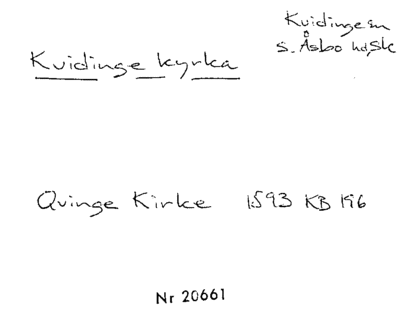 Kvidinge sn
S. Åsbo hd, Sk
Kvidinge kyrka
Qvinge Kirke 1593 KB 196
Nr 20661